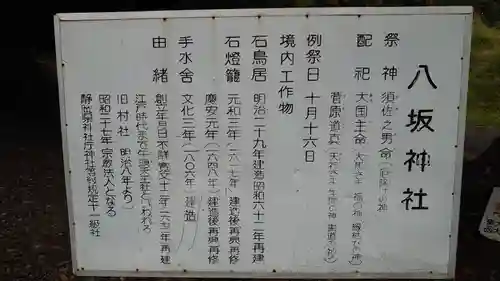 八坂神社
祭神 須佐之男命（厄除けの神
配祀 大国主命
菅原道真
例祭日 十月十六日
境内工作物
石鳥居 明治二十九年建造 昭和六十二年再建
石燈籠 元和三年（一六一七年）建造後再興再修
慶安元年（一六四八年）建造後再興再修
手水舎 文化三年（一八〇六年）建造
由緒 創立年月日不詳 寛文十二年再建
江戸時代まで牛頭天王社といわれる
旧村社 明治八年より
昭和二十七年宗教法人となる
静岡県神社庁神社等級規定十一級社